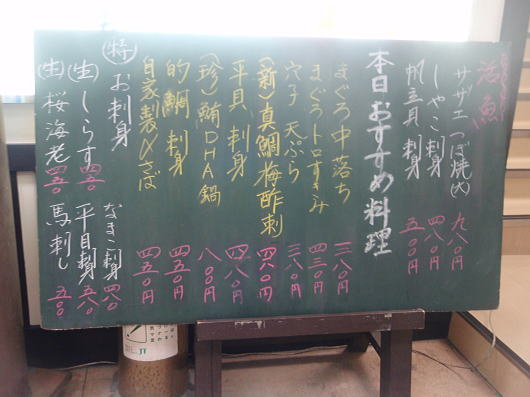 活魚
サザエつぼ焼(大) 九八〇円
しゃこ刺身 四八〇円
帆立貝刺身 五〇〇円
本日おすすめ料理
まぐろ中落ち 三八〇円
まぐろトロすきみ 四三〇円
穴子 天ぷら 三八〇円
(新)真鯛梅酢刺 四六〇円
平貝 刺身 四八〇円
(珍)鮪DHA鍋 八〇〇円
的鯛 刺身 四五〇円
自家製〆さば 四五〇円
(特)お刺身 なまこ刺身 四八〇
(生)しらす 四五〇 平目刺身 五八〇
(生)桜海老 四五〇 馬刺し
JT